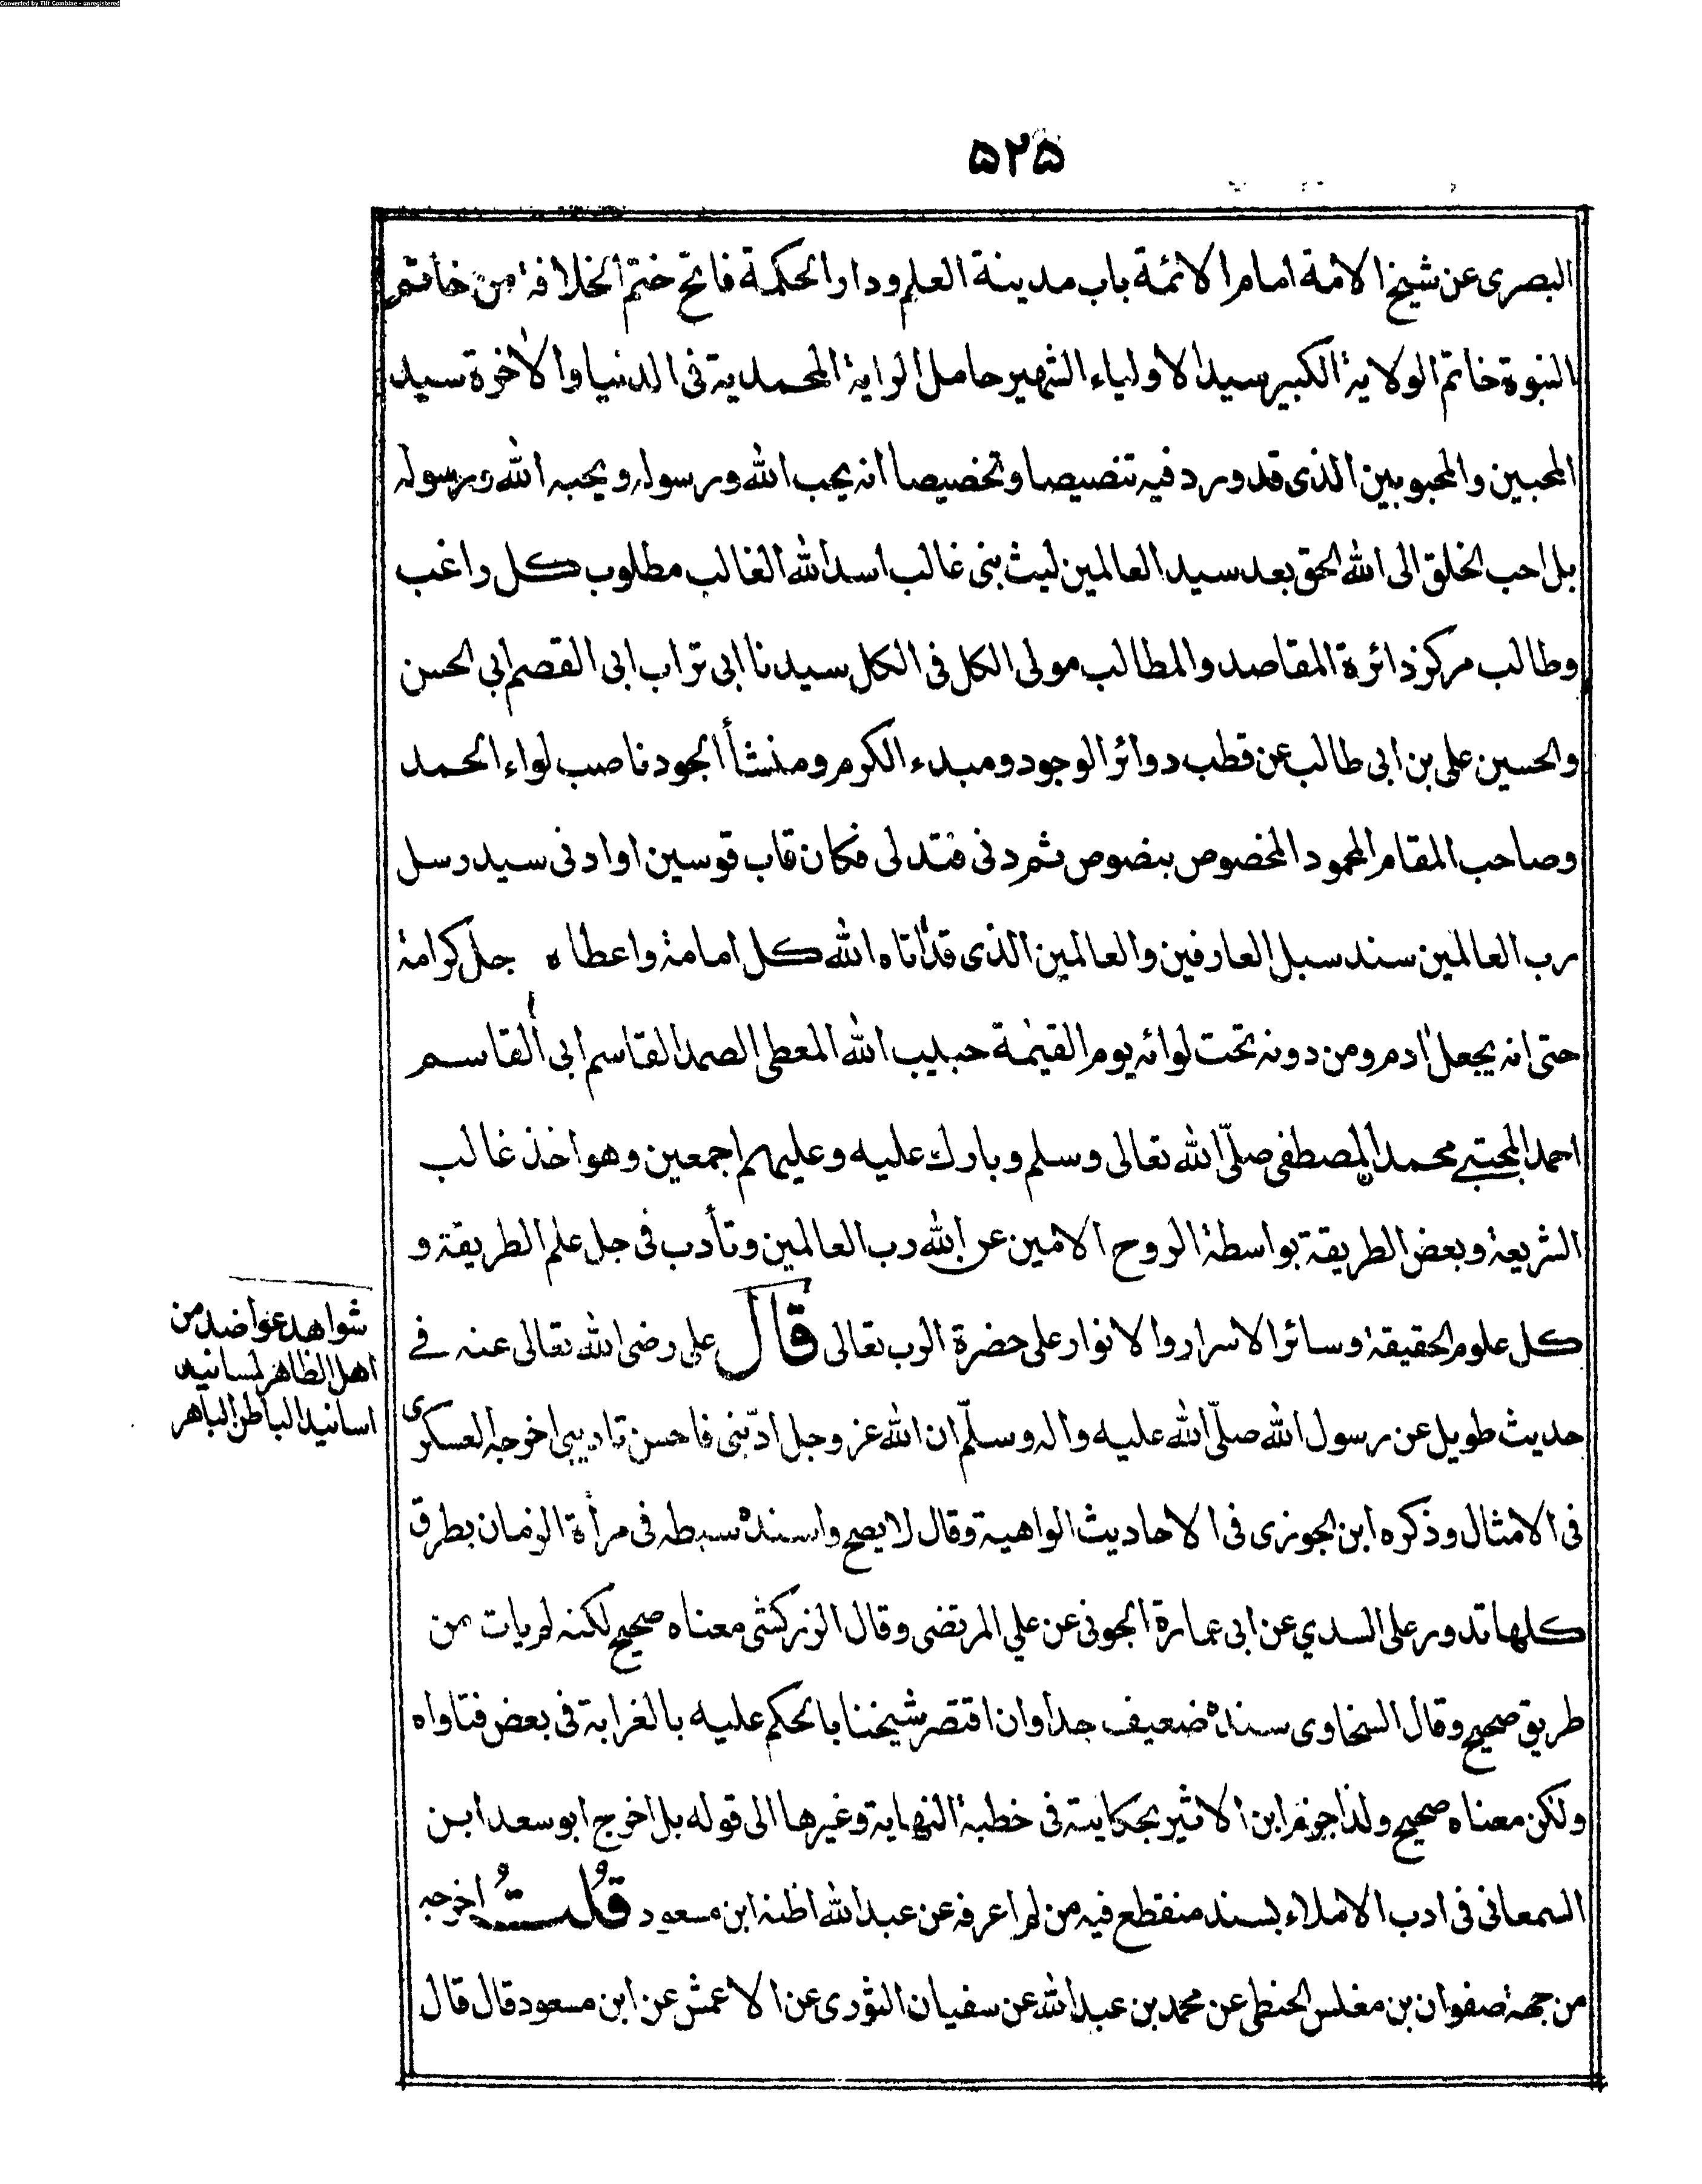 Converted by Tiff Combine - unregistered
۵۲۵
البصرى عن شيخ الامة امام الائمة باب مدينة العلم ودار الحكمة فاتح ختم الخلافة من خاتم
النبوة خاتم الولاية الكبير سيد الاولياء الشهير حامل الراية المحمدية فى الدنيا والاٰخرة سيد
المحبين والمحبوبين الذى قد ورد فيه تنصيصا وتخصيصا انه يحب الله ورسوله ويحبه الله ورسوله
بل احب الخلق الى الله الحق بعد سيد العالمين ليث بنى غالب اسد الله الغالب مطلوب كل راغب
وطالب مركز دائرة المقاصد والمطالب مولى الكل فى الكل سيدنا ابى تراب ابى القصم ابى الحسن
والحسين على بن ابى طالب عن قطب دوائر الوجود ومبدء الكرم ومنشأ الجود ناصب لواء الحمد
وصاحب المقام المحمود المخصوص بنصوص ثم دنى فتدلى فكان قاب قوسين او ادنى سيد رسل
رب العالمين سند سبل العارفين والعالمين الذى قد اٰتاه الله كل امامة واعطاه جل كرامة
حتى انه يجعل اٰدم ومن دونه تحت لوائه يوم القيٰمة حبيب الله المعطى الصمد القاسم ابى القاسم
احمد المجتبے محمد المصطفى صلّى الله تعالى وسلم وبارك عليه وعليهم اجمعين وهو اخذ غالب
الشريعة وبعض الطريقة بواسطة الروح الامين عن الله رب العالمين وتأدب فى جل علم الطريقة و
كل علوم الحقيقة وسائر الاسرار والانوار على حضرة الرب تعالى قال على رضى الله تعالى عنه فے
حديث طويل عن رسول الله صلّى الله عليه واله وسلّم ان الله عز وجل ادّبنى فاحسن تاديبى اخرجه العسكرى
فى الامثال وذكره ابن الجوزى فى الاحاديث الواهية وقال لا يصح واسنده سبطه فى مرأة الزمان بطرق
كلها تدور على السدي عن ابى عمارة الجونى عن علي المرتضى وقال الزركشى معناه صحيح لكنه لم يات من
طريق صحيح وقال السخاوى سنده ضعيف جدا وان اقتصر شيخنا بالحكم عليه بالغرابة فى بعض فتاواه
ولكن معناه صحيح ولذا جزم ابن الاثير بحكايته فى خطبة النهاية وغيرها الى قوله بل اخرج ابو سعد ابن
السمعانى فى ادب الاملاء بسند منقطع فيه من لم اعرفه عن عبد الله اظنه ابن مسعود قُلتُ اخرجه
من جهة صفوان بن مغلس الحنطى عن محمد بن عبد الله عن سفيان الثورى عن الاعمش عن ابن مسعود قال قال
شواهد عواضد من
اهل الظاهر لمسانيد
اسانيد الباطن الباهر